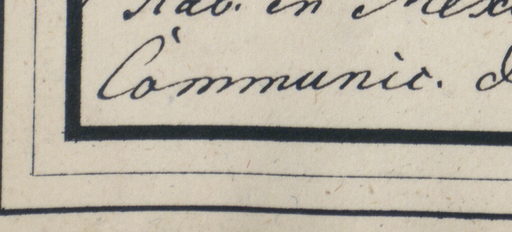 Hab. in Mex
Communic. d